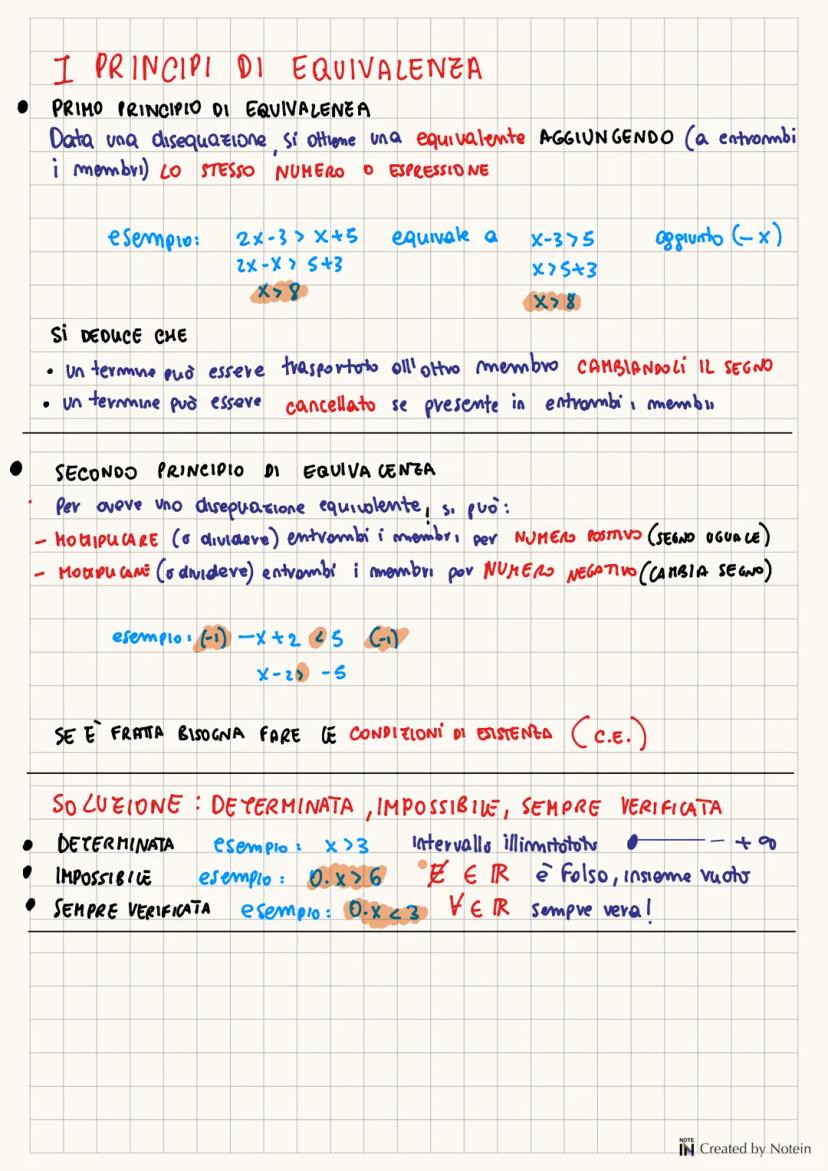 I PRINCIPI DI EQUIVALENZA
• PRIMO PRINCIPIO DI EQUIVALENZA
Data una disequazione, si ottiene una equivalente AGGIUNGENDO (a entrambi
i membri) LO STESSO NUMERO O ESPRESSIONE
esempio: 2x-3 > x+5 equivale a x-3>5 aggiunto (-x)
2x-x > 5+3 x>5+3
x>8 x>8
SI DEDUCE CHE
• un termine può essere trasportato all'altro membro CAMBIANDOLI IL SEGNO
• un termine può essere cancellato se presente in entrambi i membri
• SECONDO PRINCIPIO DI EQUIVALENZA
Per avere una disequazione equivalente, si può:
- MOLTIPLICARE (o dividere) entrambi i membri per NUMERO POSITIVO (SEGNO UGUALE)
- MOLTIPLICARE (o dividere) entrambi i membri per NUMERO NEGATIVO (CAMBIA SEGNO)
esempio: (-1) -x+2 < 5 (-1)
x-2> -5
SE È FRATTA BISOGNA FARE LE CONDIZIONI DI ESISTENZA (C.E.)
SOLUZIONE: DETERMINATA, IMPOSSIBILE, SEMPRE VERIFICATA
• DETERMINATA esempio: x>3 intervallo illimitato +∞
• IMPOSSIBILE esempio: 0·x>6 ∄ ∈ ℝ è falso, insieme vuoto
• SEMPRE VERIFICATA esempio: 0·x<3 ∀ ∈ ℝ sempre vera!
NOTE IN Created by Notein